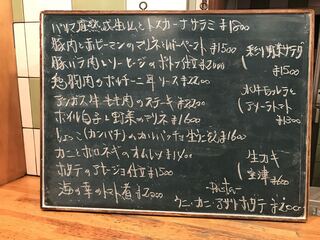 パルマ産 生ハムとトスカーナサラミ ¥1800
豚肉と赤ピーマンのマリネ ¥1500
豚バラ肉とソーセージのポトフ仕立 ¥2000
鶏肉のポルチーニ茸ソース ¥2200
牛もも肉のステーキ ¥2200
ボイル白子と野菜のマリネ ¥1600
しょっこ(カンパチ)のカルパッチョ生うに ¥1600
カニとポロネギのオムレツ ¥1400
ホタテのアヒージョ仕立 ¥1500
海の幸のトマト煮 ¥2000
彩り野菜サラダ
¥1500
水牛モッツァレラと
フルーツトマト
¥1300
生カキ
室津 ¥600
-Pasta-
ウニ・カニ・アサリ・ホタテ ¥2000